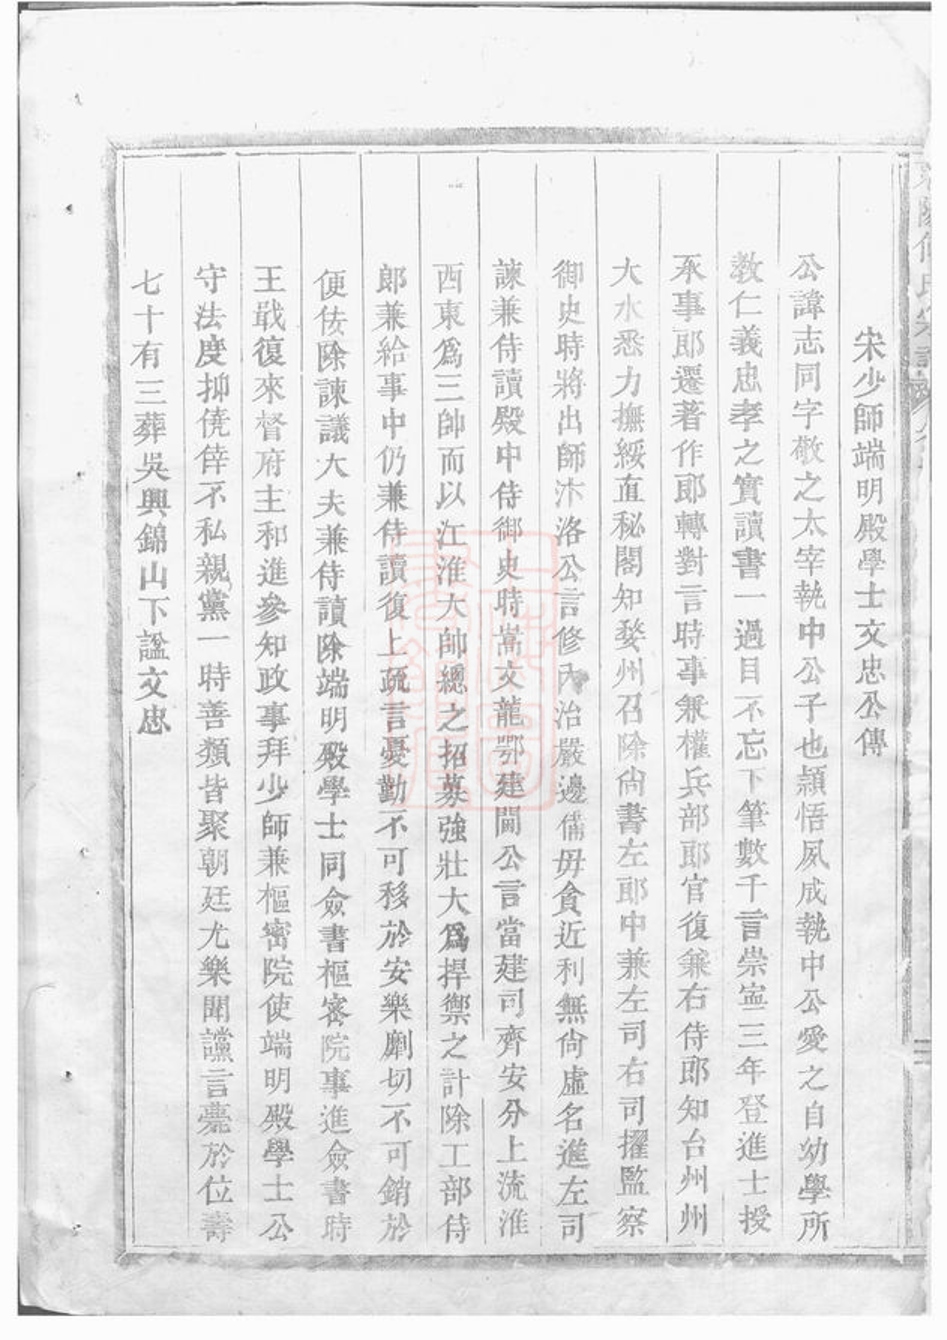 宋少師端明殿學士文忠公傳
公諱志同字敬之太宰執中公子也頴悟夙成執中公愛之自幼學所
教仁義忠孝之實讀書一過目不忘下筆數千言崇寧三年登進士授
承事郎遷著作郎轉對言時事兼權兵部郎官復兼右侍郎知台州州
大水悉力撫綏直秘閣知婺州召除尙書左郎中兼左司右司擢監察
御史時將出師汴洛公言修內治嚴邊備毋貪近利無尙虛名進左司
諫兼侍讀殿中侍御史時嵩文龍鄂建閫公言當建司齊安分上流淮
西東爲三帥而以江淮大帥總之招募強壯大爲捍禦之計除工部侍
郎兼給事中仍兼侍讀復上疏言憂勤不可移於安樂劘切不可銷於
便佞除諫議大夫兼侍讀除端明殿學士同僉書樞密院事進僉書時
王戢復來督府主和進參知政事拜少師兼樞密院使端明殿學士公
守法度抑僥倖不私親黨一時善類皆聚朝廷尤樂聞讜言薨於位壽
七十有三葬吳興錦山下諡文忠